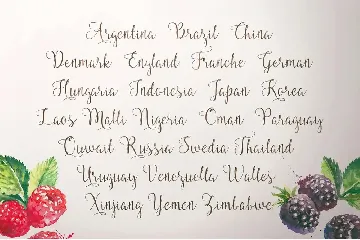 Argentina Brazil China
Denmark England Franche German
Hungaria Indonesia Japan Korea
Laos Malti Nigeria Oman Paraguay
Quwait Russia Swedia Thailand
Uruguay Venezuella Walles
Xinjiang Yemen Zimbabwe